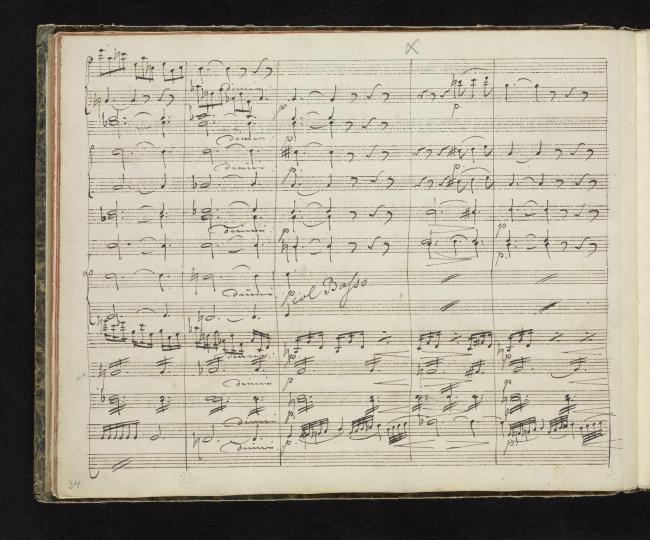 dimin:
p
p.
dimin:
p
p
dimin:
p.
dimin:
p
p.
dimin:
Col Basso
dimin:
p
p
dimin:
p
dimin:
p
p
dimin:
p
p
34